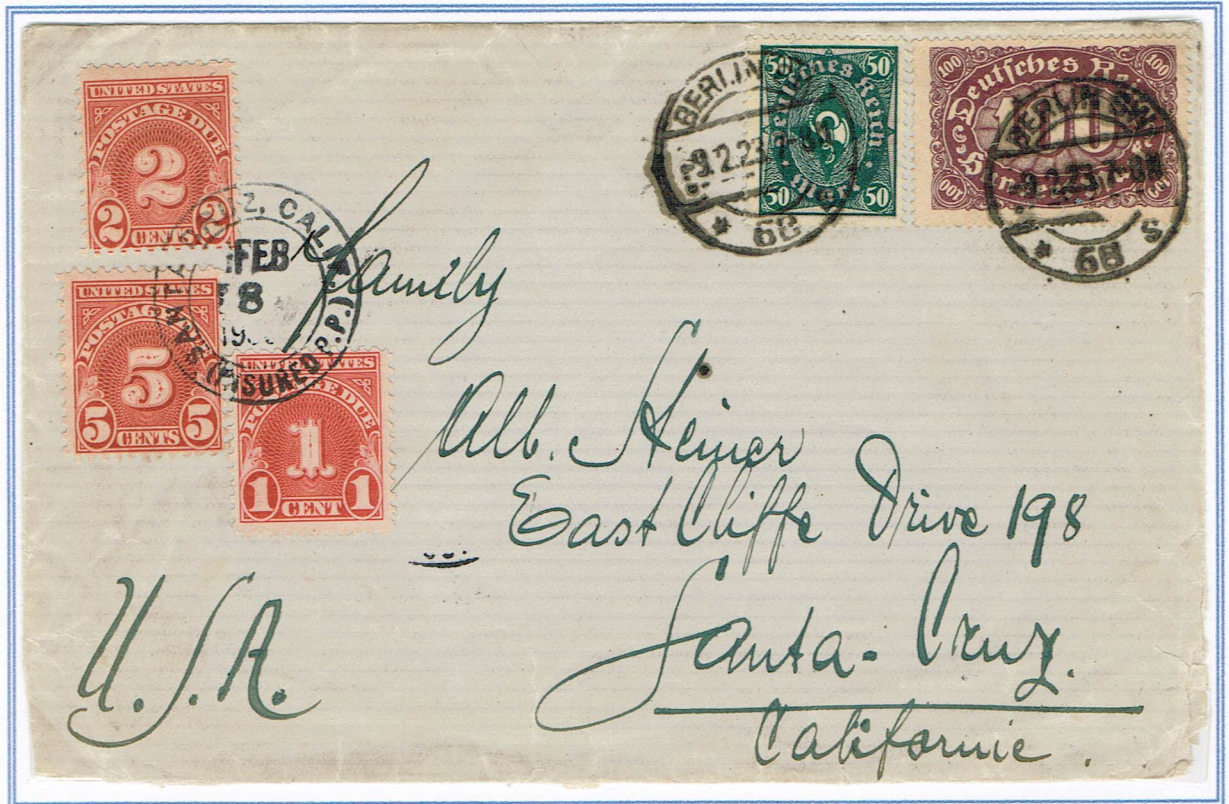 UNITED STATES
POSTAGE DUE
2
2 CENTS 2
UNITED STATES
POSTAGE
5
5 CENTS 5
UNITED STATES
POSTAGE DUE
1
1 CENT 1
CALIF.
FEB
8
(INSURED P.P.)
50 50
Deutsches Reich
50 Mark 50
BERLIN
-9.2.23
* 68 s
100 100
Deutsches Reich
100
100 100
BERLIN SW
-9.2.23.7-8N
* 68 s
Family
Alb. Steiner
East Cliffe Drive 198
Santa-Cruz.
Californie.
U.S.A.